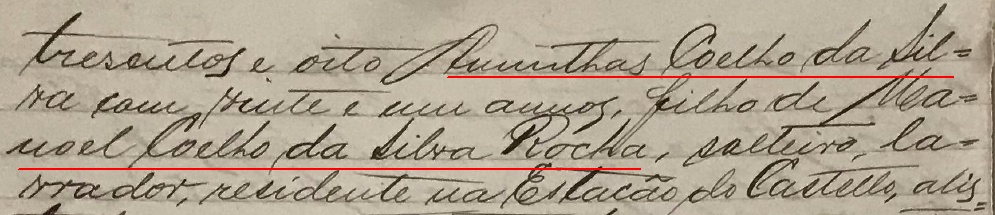 tresentos e oito Amynthas Coelho da Sil=
va com vinte e um annos, filho de Ma=
noel Coelho da Silva Rocha, solteiro, la=
vrador, residente na Estacão do Castello, alis=